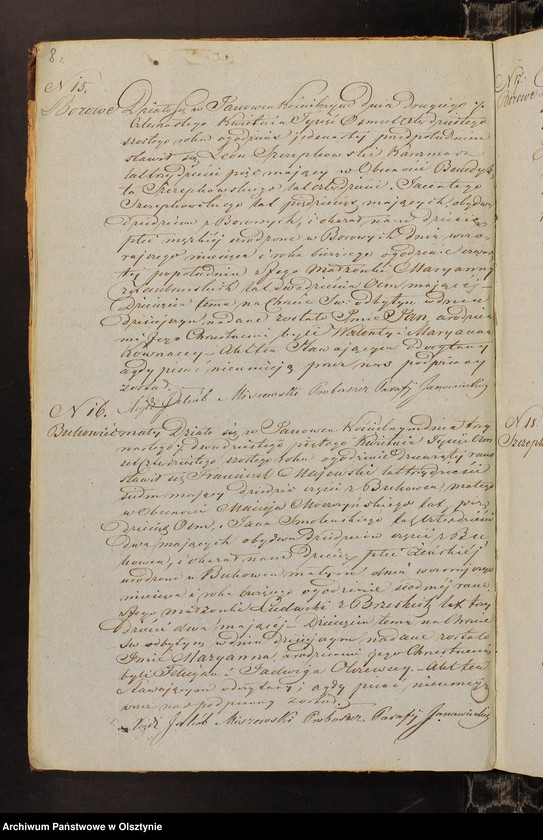 8.
N 15.
Borowe Działo się w Janowcu Kościelnym dnia drugiego
Kwietnia Tysiąc Osmset dwudziestego
szostego roku o godzinie jedenastej przed południem
stawił się Leon Szczepkowski
lat trzydzieści pięć mający w Obecności Benedyk
ta Szczepkowskiego lat czterdzieści i Jacentego
Szczepkowskiego lat pięćdziesiąt mających, obydwóch
Dziedziców z Borowych, i okazał nam dziecie
płci męzkiej urodzone w Borowych dniu wczo-
rajszego miesiąca i roku bieżącego o godzinie czwar
ty popołudniu z Jego małżonki Maryanny
lat dwadzieścia Ośm mającej -
Dziecięciu temu na Chrzcie Sw: odbytym dniu
dzisiejszym nadane zostało Imie Jan, a rodzica
mi Jego Chrzestnemi byli Walenty i Maryanna
- Akt ten Stawającym doczytany
a gdy pisać nie umieją przez nas podpisany
został.
Xiądz Jakób Miszewski Proboszcz Parafij Janowieckiej
N 16.
Bukowiec mały Działo się w Janowcu Kościelnym dnia
dwudziestego piątego Kwietnia Tysiąc Ośm
set dwudziestego szostego roku o godzinie dziewiątej rano
stawił się Franciszek Majewski lat trzydzieści
siedm mający dziedzic części z Bukowca małego
w Obecności Macieja Moczyńskiego lat pięć
dziesiąt Ośm, i Jana Smolenskiego lat trzydzieści
dwa mających obydwóch Dziedziców części z Bu
kowca, i okazał nam Dziecie płci żeńskiej
urodzone w Bukowcu małym dnia wczorajszego
miesiąca i roku bieżącego o godzinie siódmej rano
z Jego małżonki Ludwiki z lat trzy
dzieści dwa mającej - Dziecięciu temu na Chrzcie
Sw odbytym w dniu dzisiejszym nadane zostało
Imie Maryanna, a rodzicami jego Chrzestnemi
byli Felicyan i Jadwiga Olszewscy - Akt ten
stawającym odczytany i a gdy pisać nieumieją
przez nas podpisany został
Xiądz Jakób Miszewski Proboszcz Parafij Janowieckiej
N 17.
Borowe
N 18
Archiwum Państwowe w Olsztynie